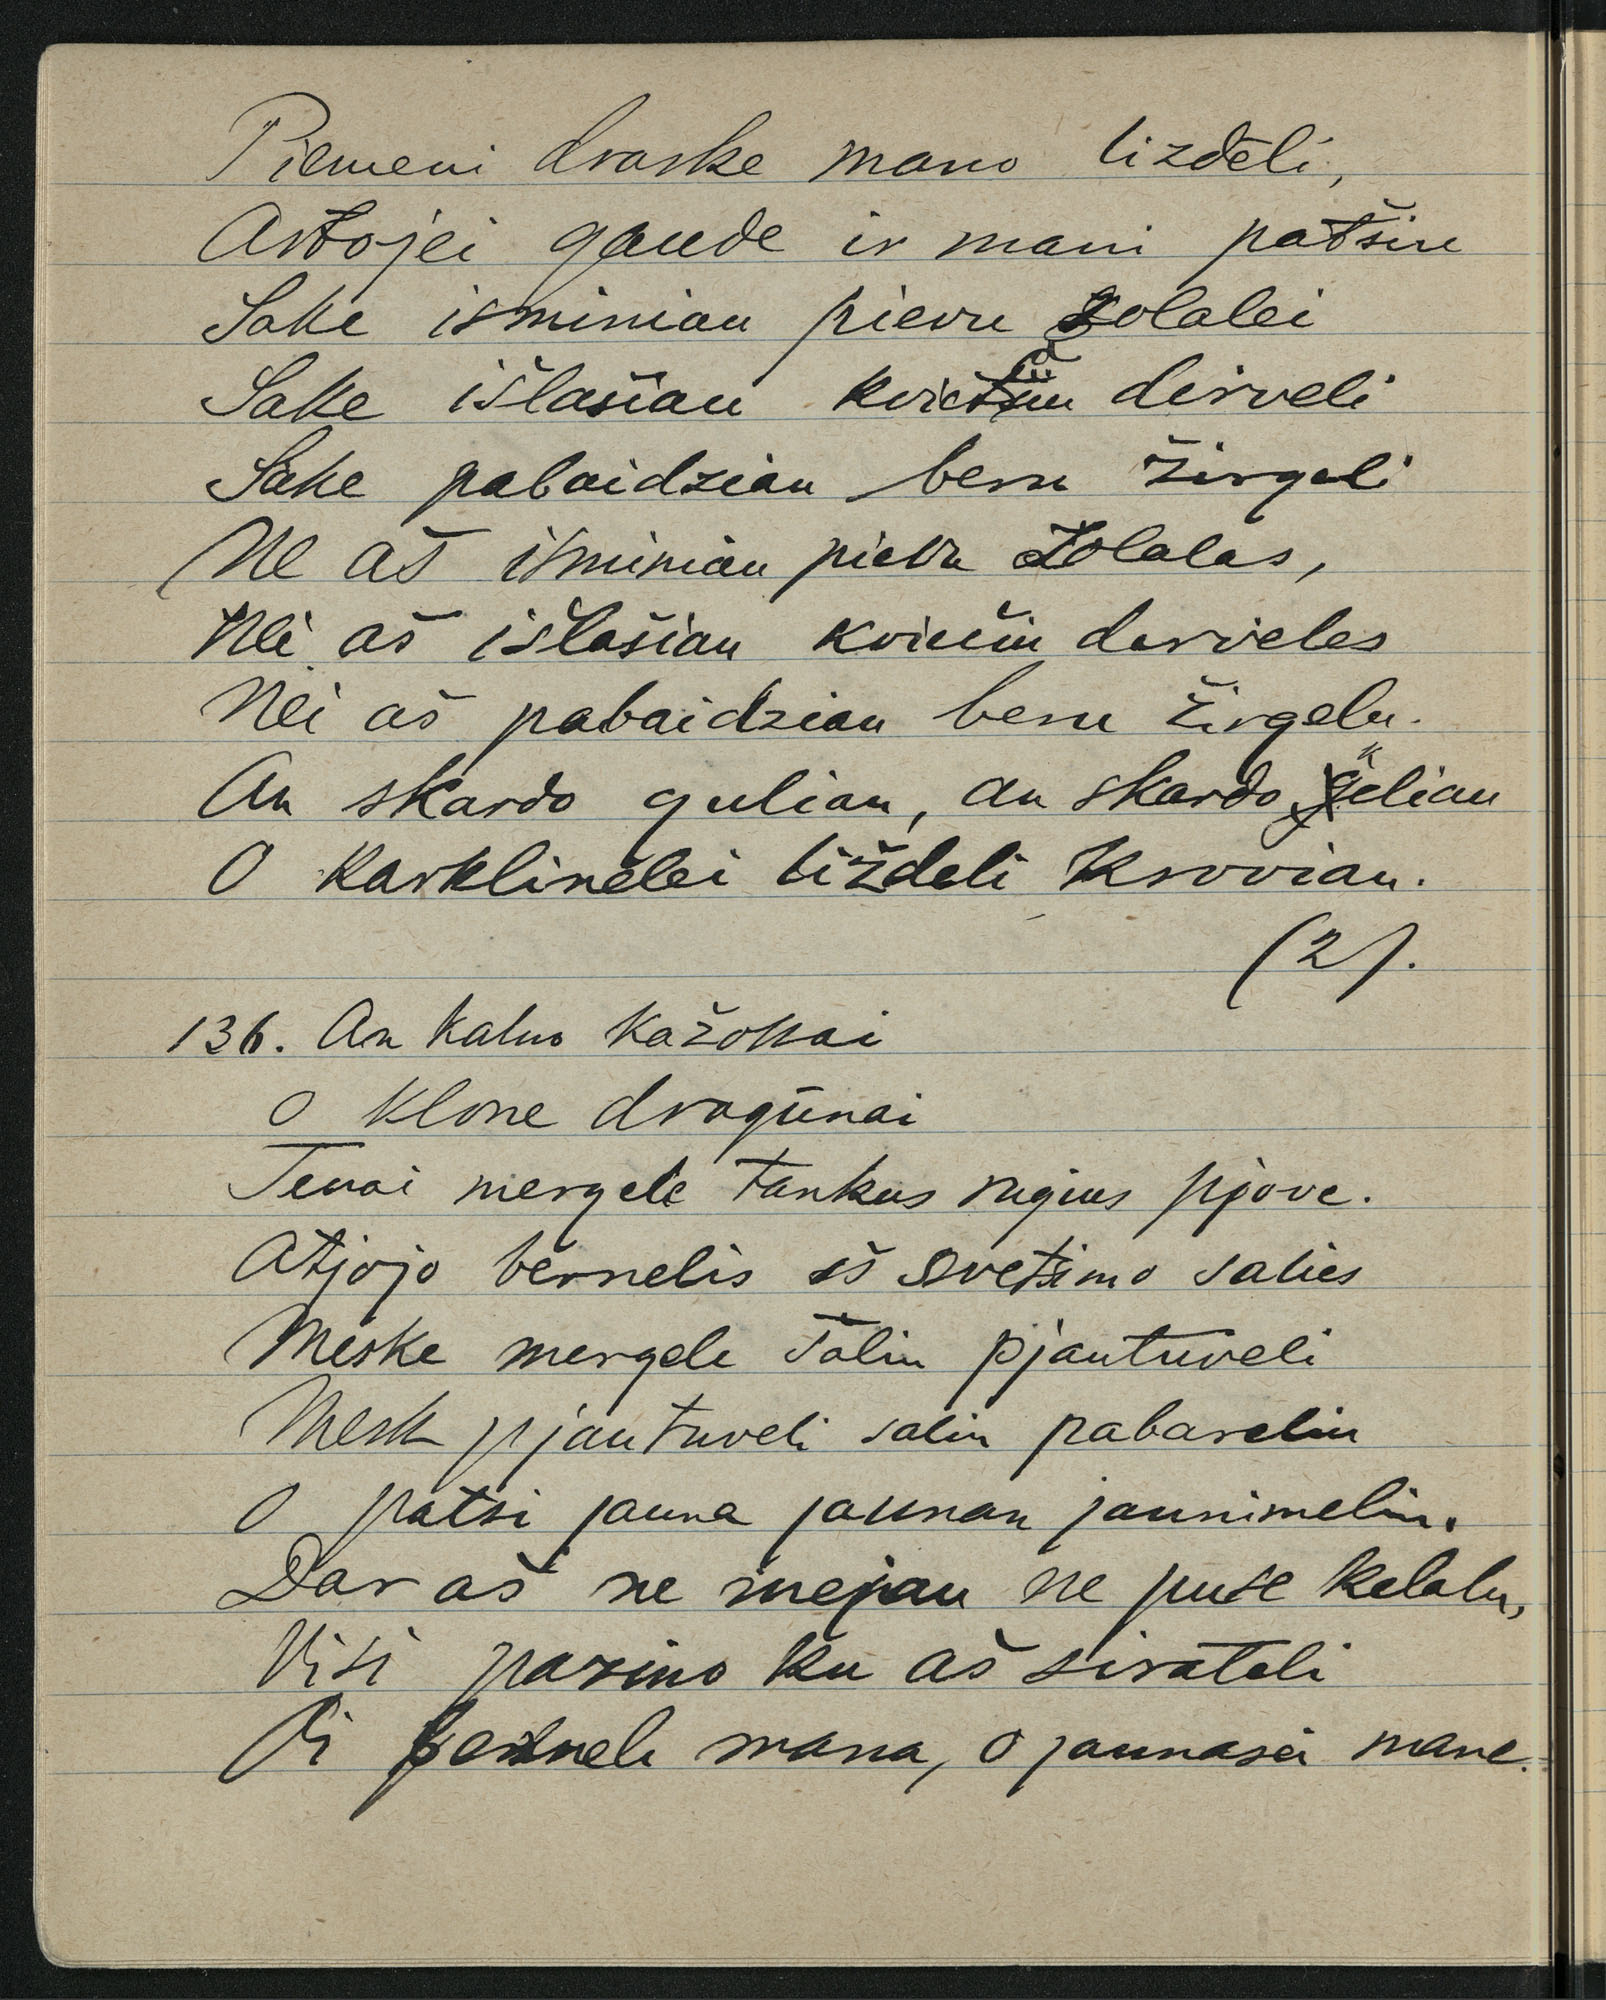 Piemeni draske mano lizdeli,
Artojei gaude ir mani patšiu
Sake isminiau pievu žolalei
Sake išlašiau kviečiu dirveli
Sake pabaidziau beru žirgeli
Ne aš isminiau pievu žolalas,
Nei aš išlašiau kviečiu derveles
Nei aš pabaidziau beru žirgelu.
An skardo guliau, an skardo keliau
O karklinelei liždeli kroviau.
(2).
136. An kalno kažokai
O klone dragūnai
Tenai mergele tankus rugius pjove.
Atjojo bernelis iš svetsimo salies
Meske mergele šalin pjautuveli
Mesk pjautuveli salin pabareliu
O patsi jauna jaunan jaunimelin.
Dar aš ne inejau ne puse kelalu,
Visi pazino ku aš sirateli
Oi berneli mana, o jaunasei mane.